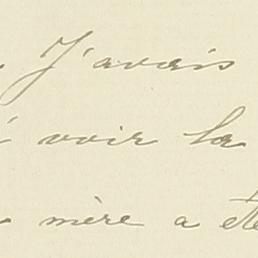 J'avais
voir la
mère a été